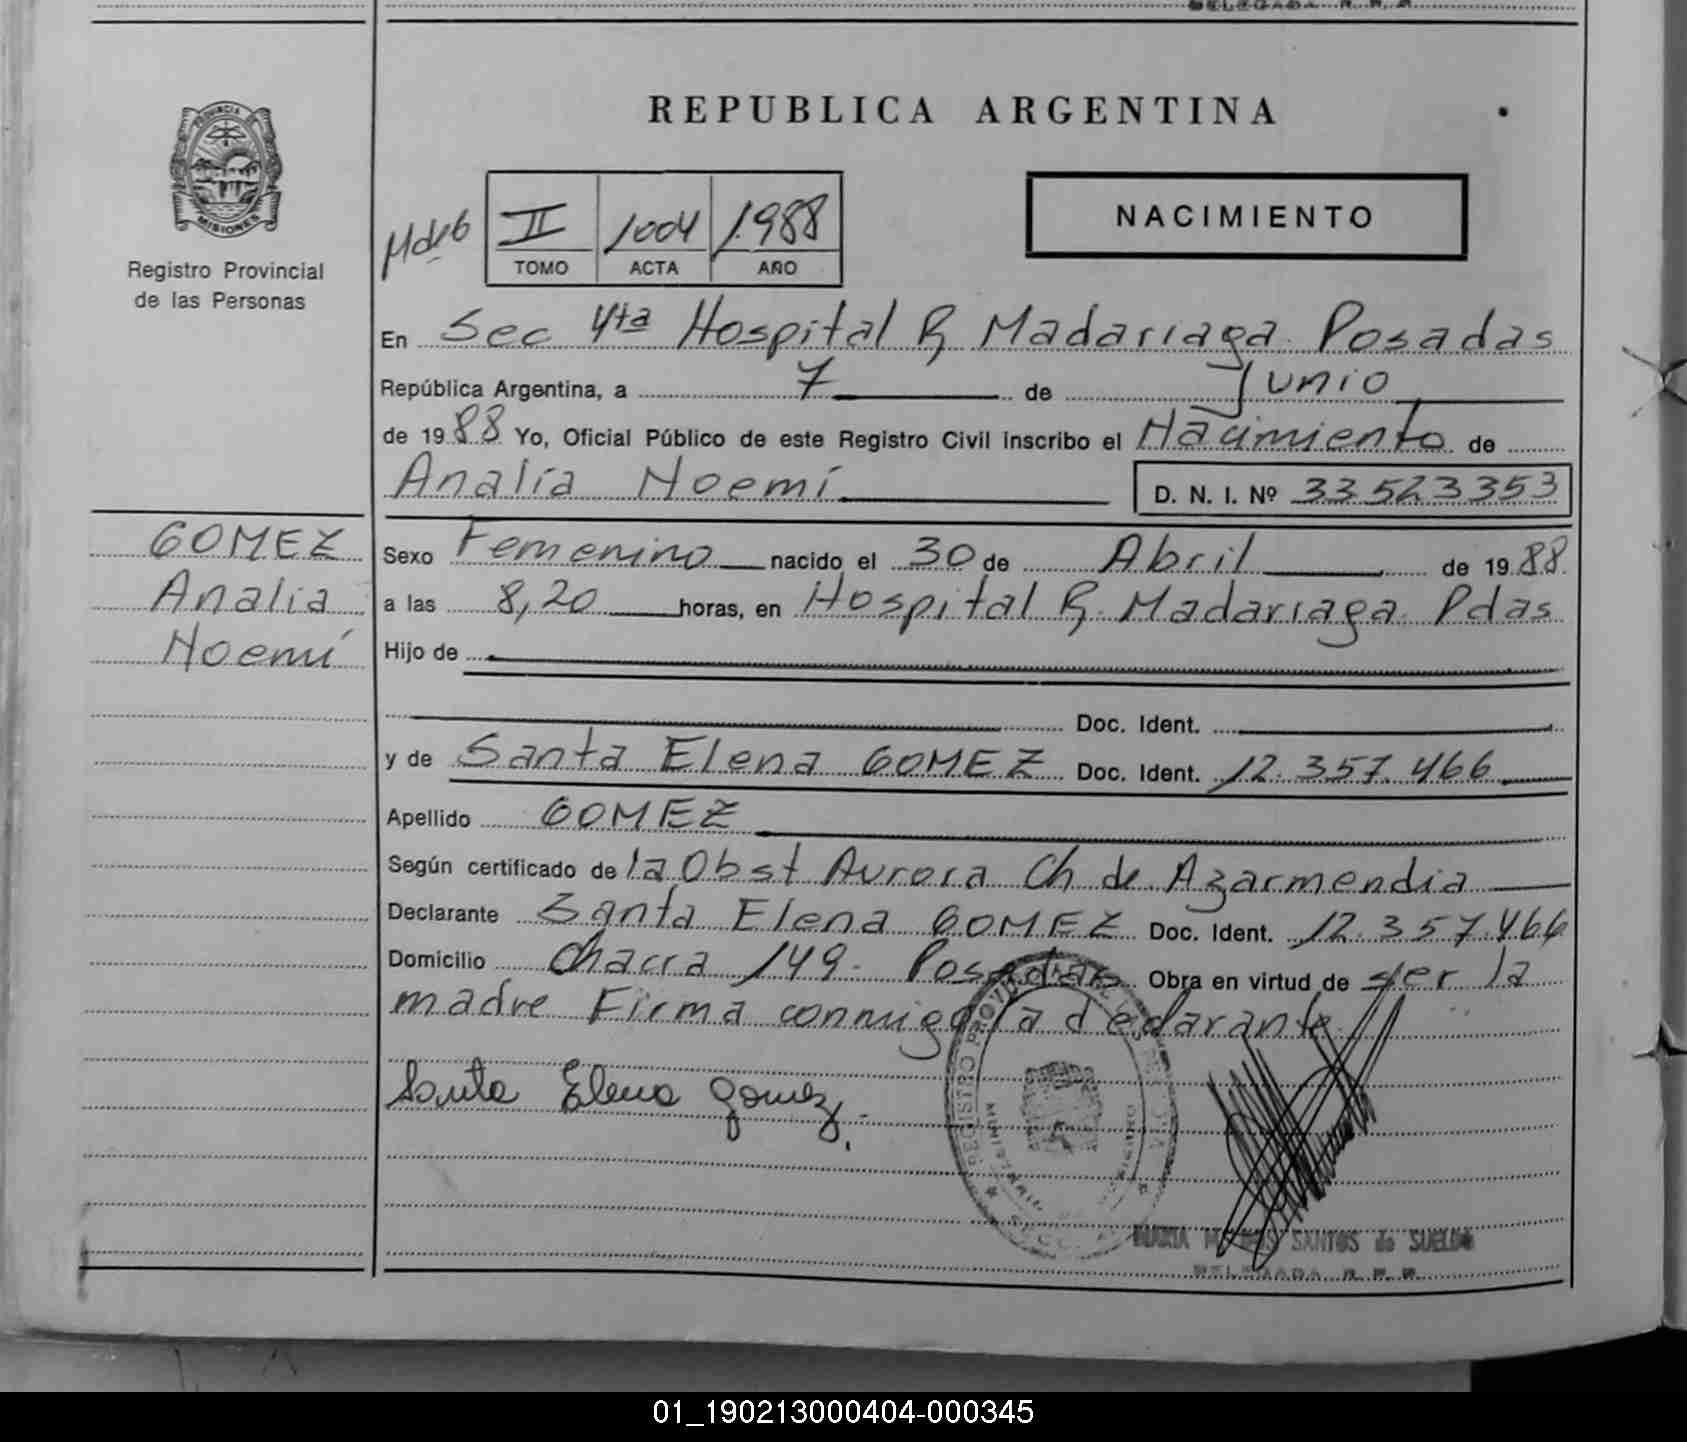 DELEGADA R. P. P.
REPUBLICA ARGENTINA
PROVINCIA DE
MISIONES
Registro Provincial
de las Personas
II 1004 1988
TOMO ACTA AÑO
NACIMIENTO
En Sec 4ta Hospital R Madariaga Posadas
República Argentina, a 7 de Junio
de 1988 Yo, Oficial Público de este Registro Civil inscribo el Nacimiento de
Analía Noemí D. N. I. Nº 33523353
GOMEZ
Analia
Noemí
Sexo Femenino nacido el 30 de Abril de 1988
a las 8,20 horas, en Hospital R. Madariaga Pdas
Hijo de
Doc. Ident.
y de Santa Elena GOMEZ Doc. Ident. 12.357.466
Apellido GOMEZ
Según certificado de la Obst Aurora Ch de Azarmendia
Declarante Santa Elena GOMEZ Doc. Ident. 12.357.466
Domicilio Chacra 149. Posadas Obra en virtud de ser la
madre Firma conmigo la declarante
Santa Elena Gomez
REGISTRO PROVINCIAL DE LAS PERSONAS
MINISTERIO DE GOBIERNO
SANTOS de SUELDO
DELEGADA R. P. P.
01_190213000404-000345